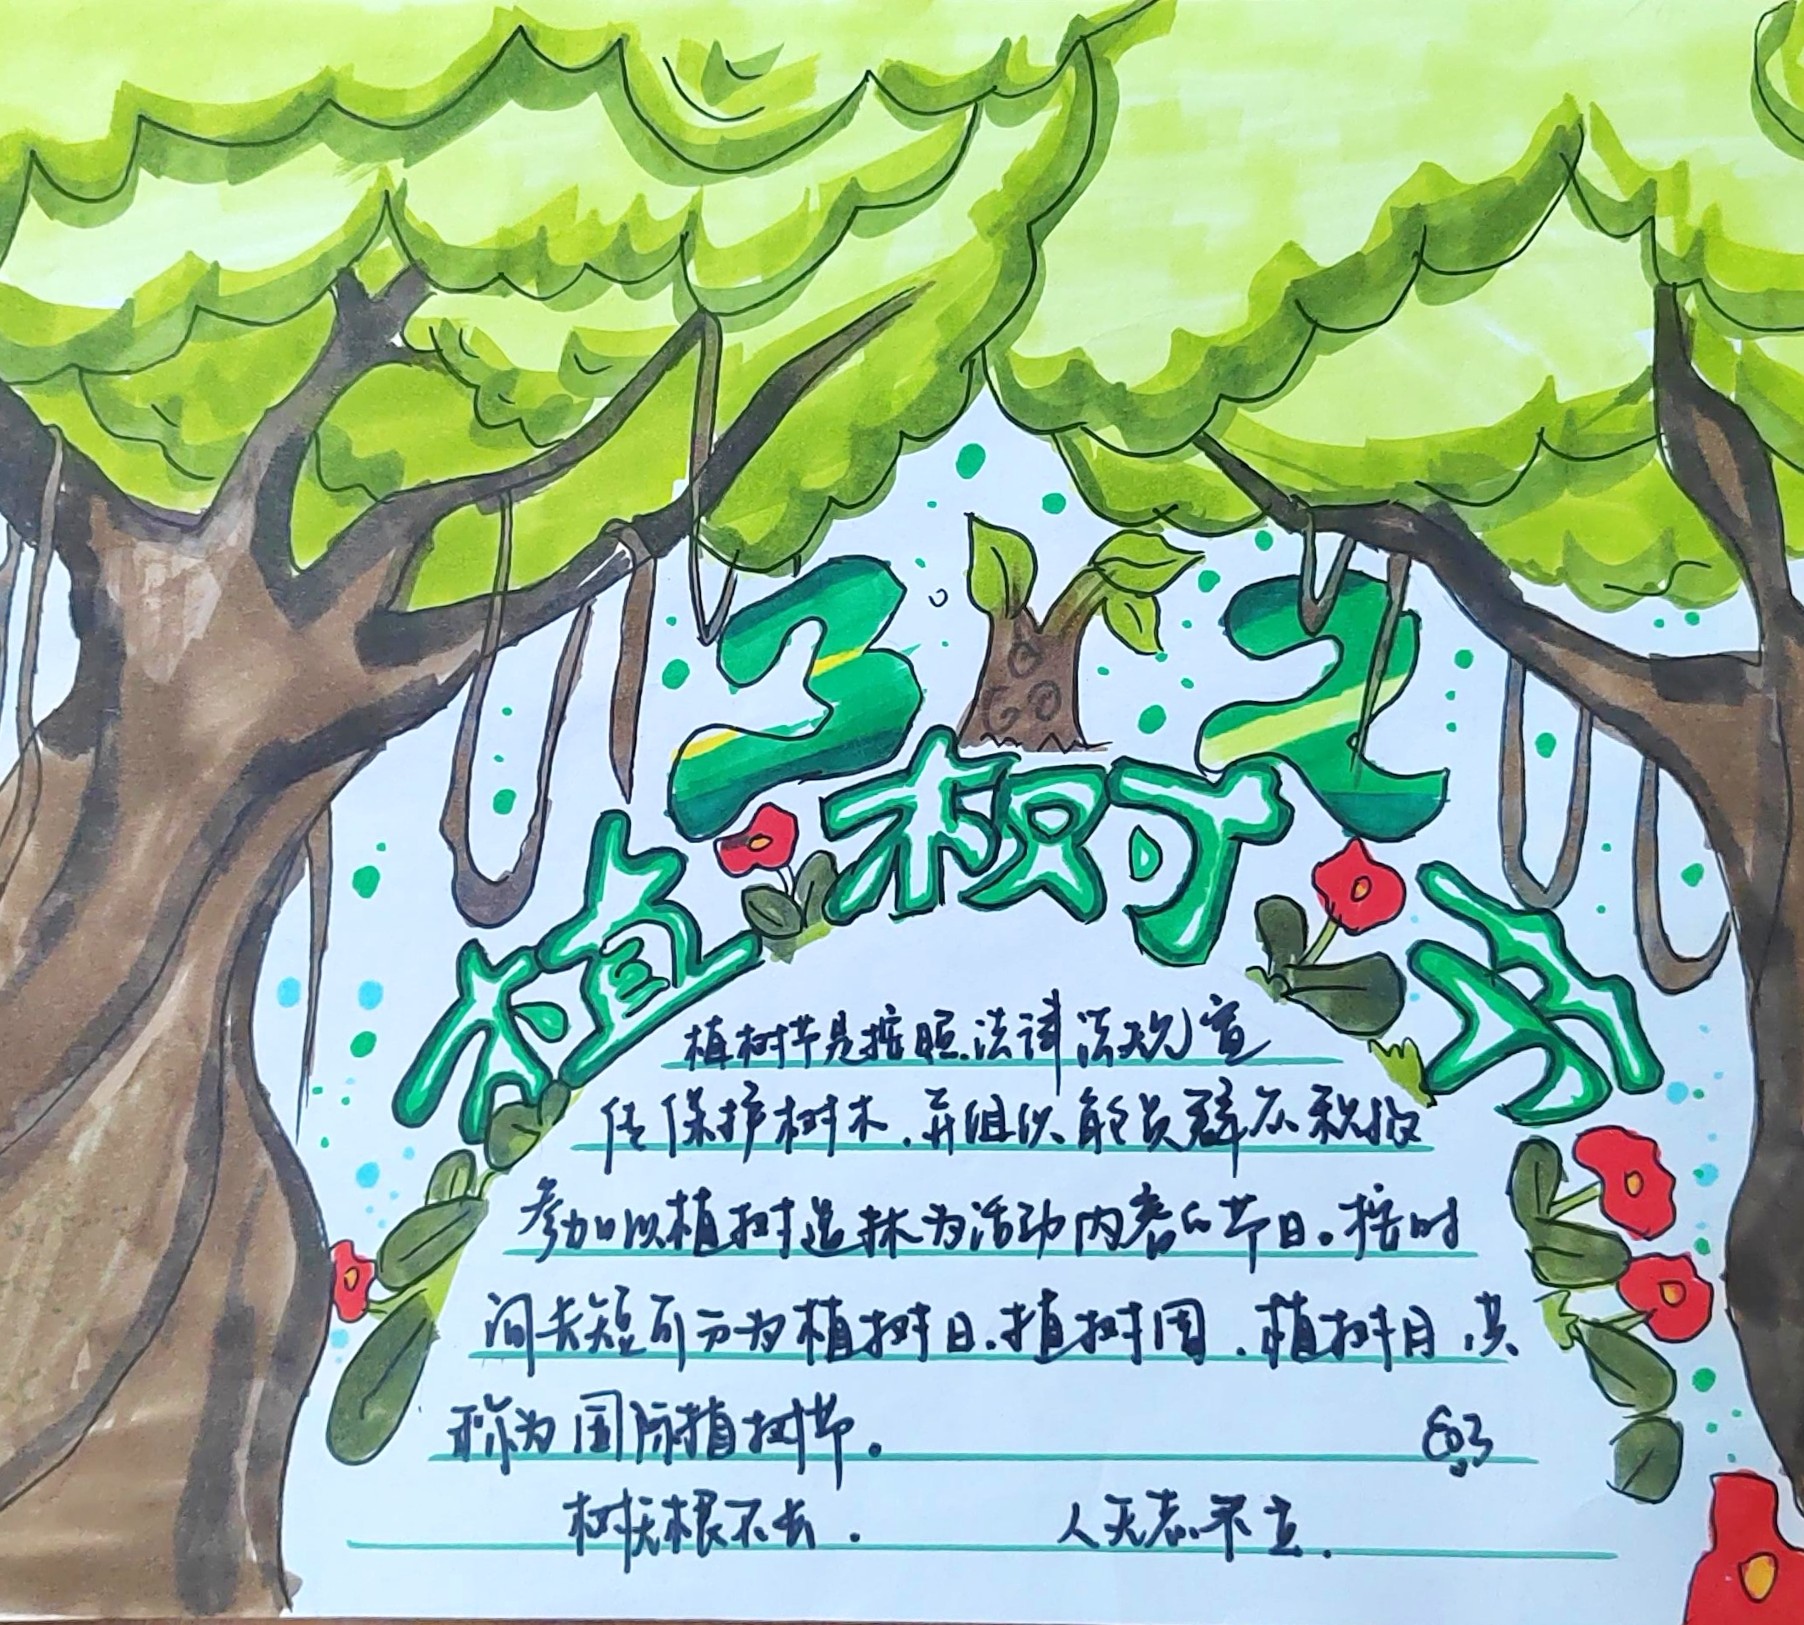 3 12
植树节
植树节是按照法律法规宣
传保护树木,并组织动员群众积极
参加以植树造林为活动内容的节日。按时
间长短可分为植树日、植树周、植树月,共
称为国际植树节。
树无根不长. 人无志不立.